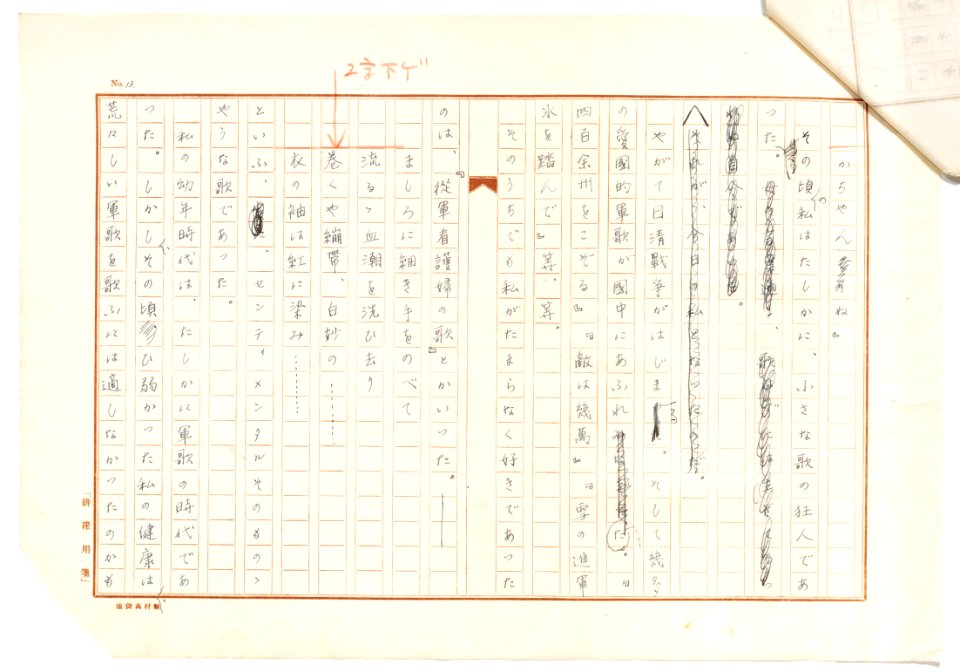 No. 13
2字下ゲ
かちやん
ね』
その頃の私はたしかに、小さな歌の狂人であ
つた。
それが、今日の私となつたのだ。
やがて日清戦争がはじまつた。そして幾多
の愛國的軍歌が國中にあふれた。『
四百余州をこぞる』『敵は幾萬』『雪の進軍
氷を踏んで』等、等。
そのうちでも私がたまらなく好きであつた
のは、『從軍看護婦の歌』とかいつた。――
ましろに細き手をのべて
流るゝ血潮を洗ひ去り
巻くや繃帶、白妙の……
衣の袖は紅に染み……
といふ、センティメンタルそのものゝ
やうな歌であつた。
私の幼年時代は、たしかに軍歌の時代であ
つた。しかし、その頃ひ弱かつた私の健康は、
荒々しい軍歌を歌ふには適しなかつたのかも
「研究用箋」